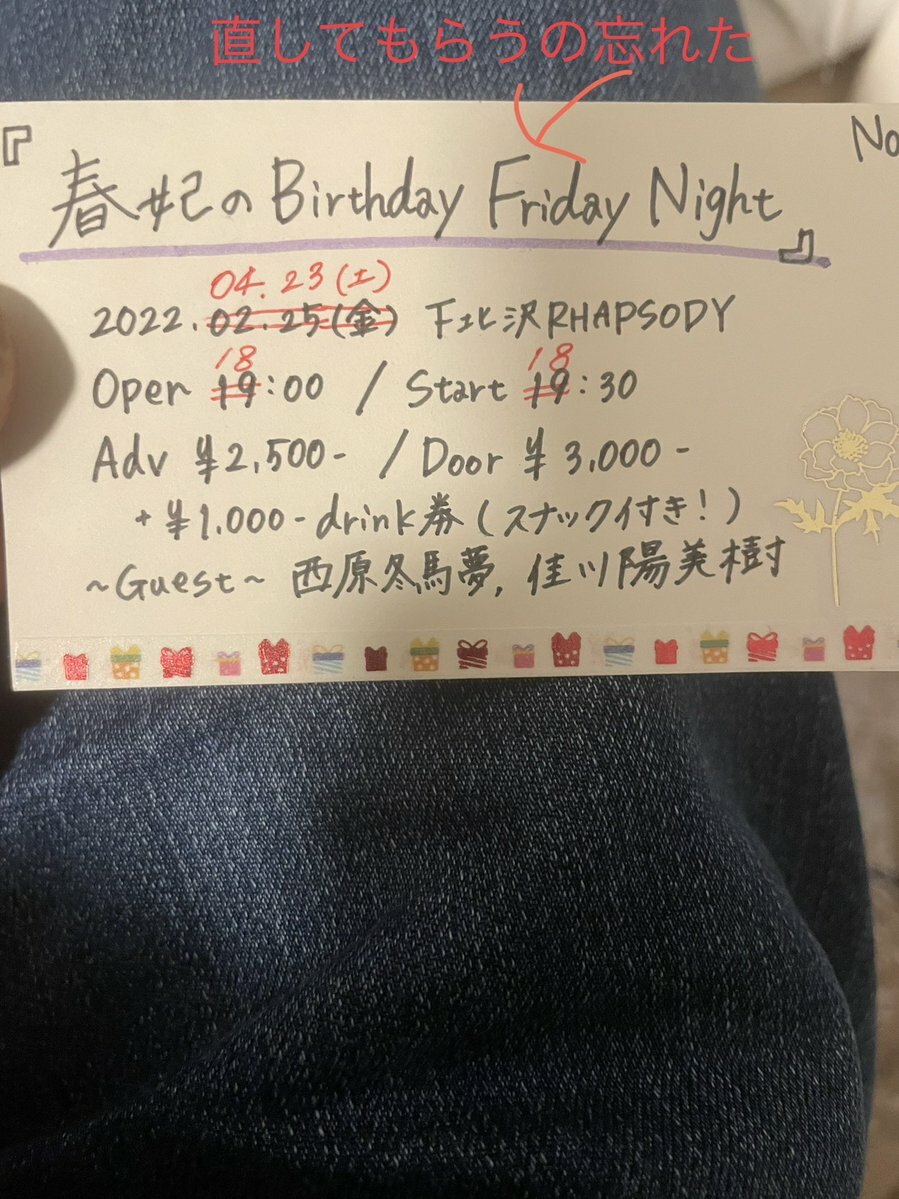 直してもらうの忘れた
『 No
春妃のBirthday Friday Night 』
04.23(土)
2022.02.25(金) 下北沢RHAPSODY
18 18
Open 19:00 / Start 19:30
Adv ¥2,500- / Door ¥3,000-
+ ¥1,000- drink券(スナック付き!)
~Guest~ 西原冬馬夢, 佳川陽美樹